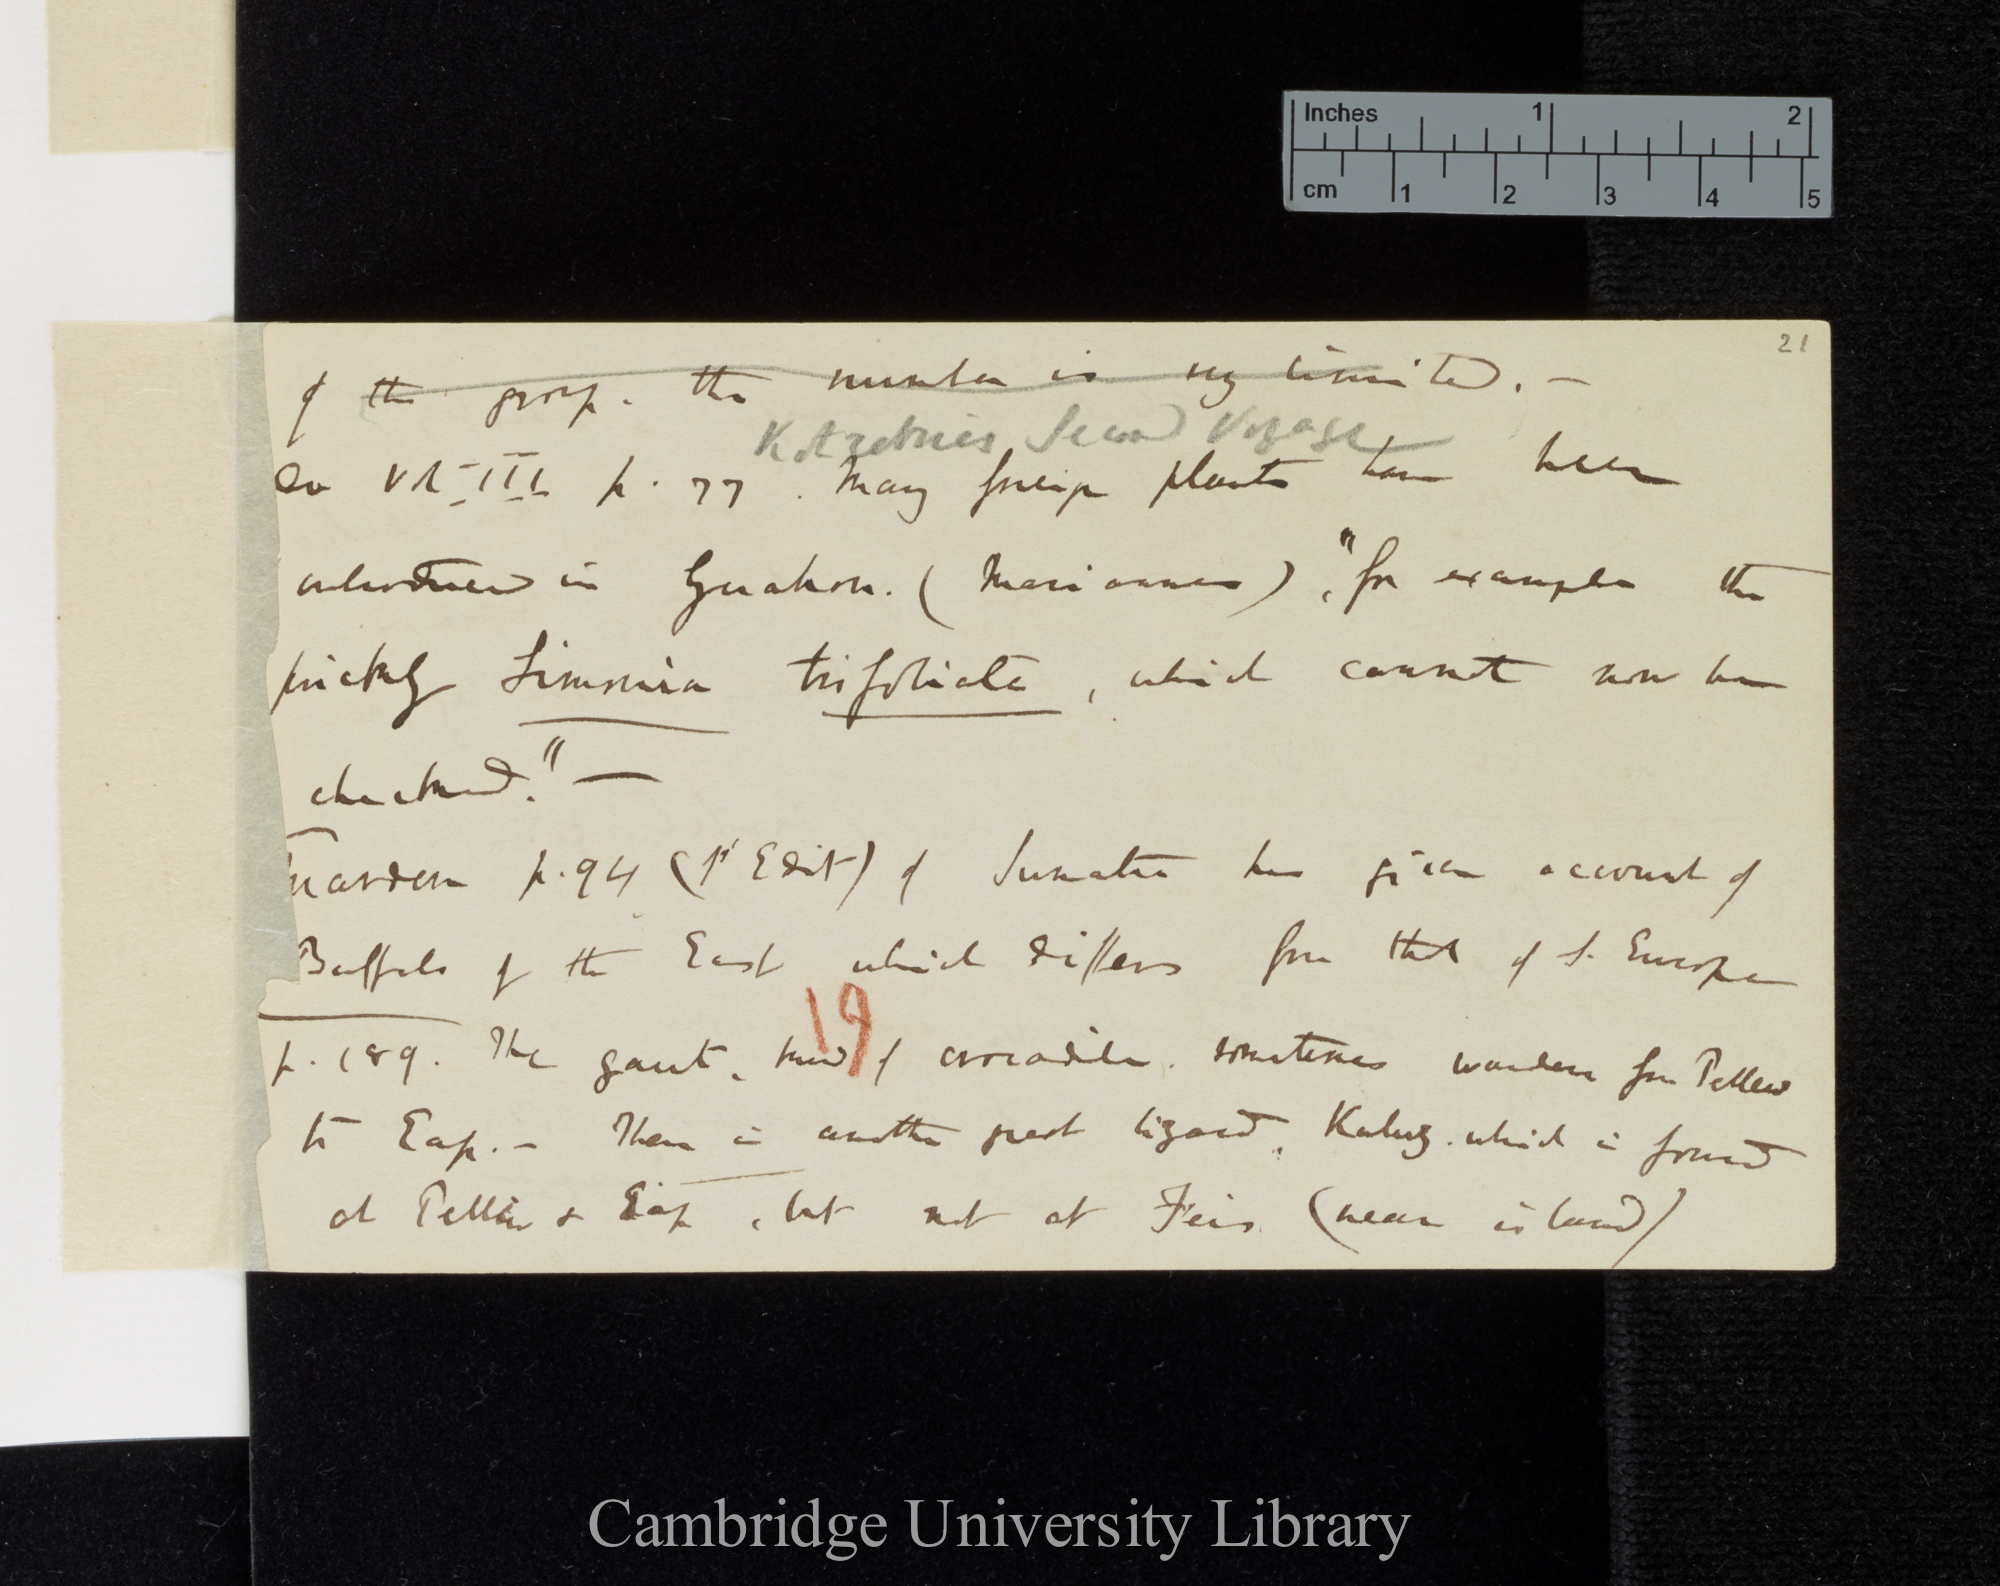 Inches 1 2
cm 1 2 3 4 5
21
of the group. the number is very limited. —
Kotzebue's Second Voyage
Do Vol III p. 77. Many foreign plants have been
introduced in Guahon. (Mariannes), "for example the
prickly Limonia trifoliata, which cannot now be
checked." —
Marsden p. 94 (1st Edit) of Sumatra has given account of
Buffalo of the East which differs from that of S. Europe
19
p. 189. The gaut, kind of crocodile. sometimes wanders from Pellew
to Eap. — There is another great lizard, Kaluz. which is found
at Pellew & Eap, but not at Feis (near island)
Cambridge University Library